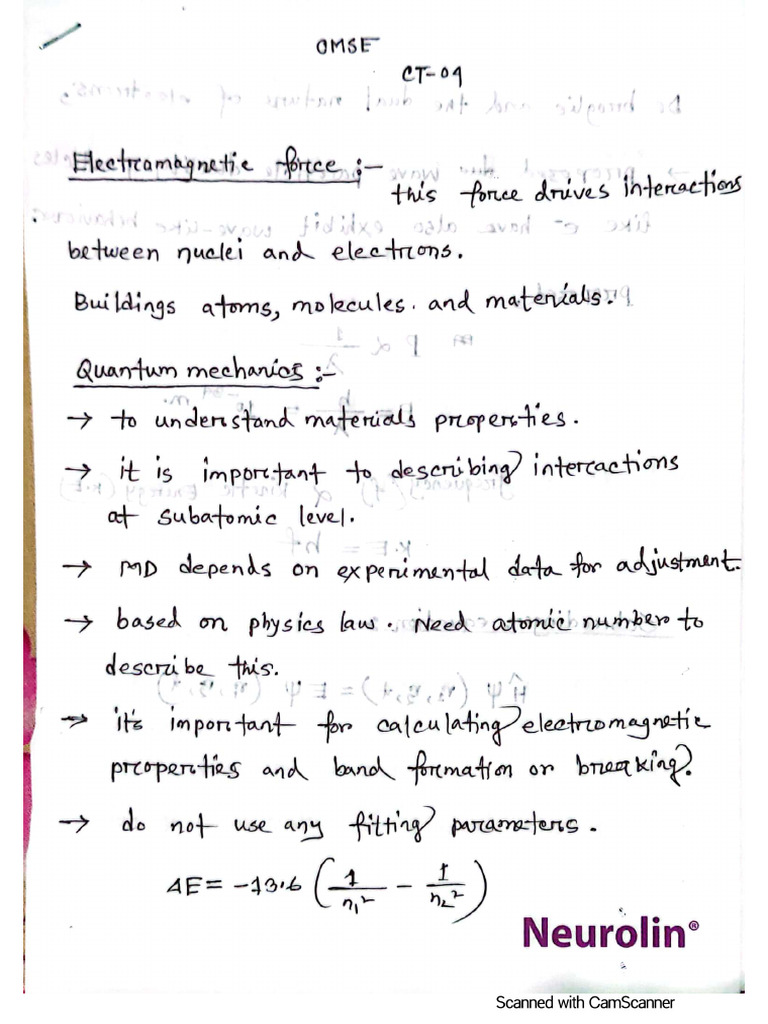 CMSE
CT-04
Electromagnetic force :-
this force drives interactions
between nuclei and electrons.
Buildings atoms, molecules. and materials.
Quantum mechanics :-
→ to understand materials properties.
→ it is important to describing interactions
at subatomic level.
→ MD depends on experimental data for adjustment.
→ based on physics law. Need atomic number to
describe this.
→ it's important for calculating electromagnetic
properties and band formation or breaking.
→ do not use any fitting parameters.
ΔE = -13.6 (1/n₁² - 1/n₂²)
Neurolin®
Scanned with CamScanner